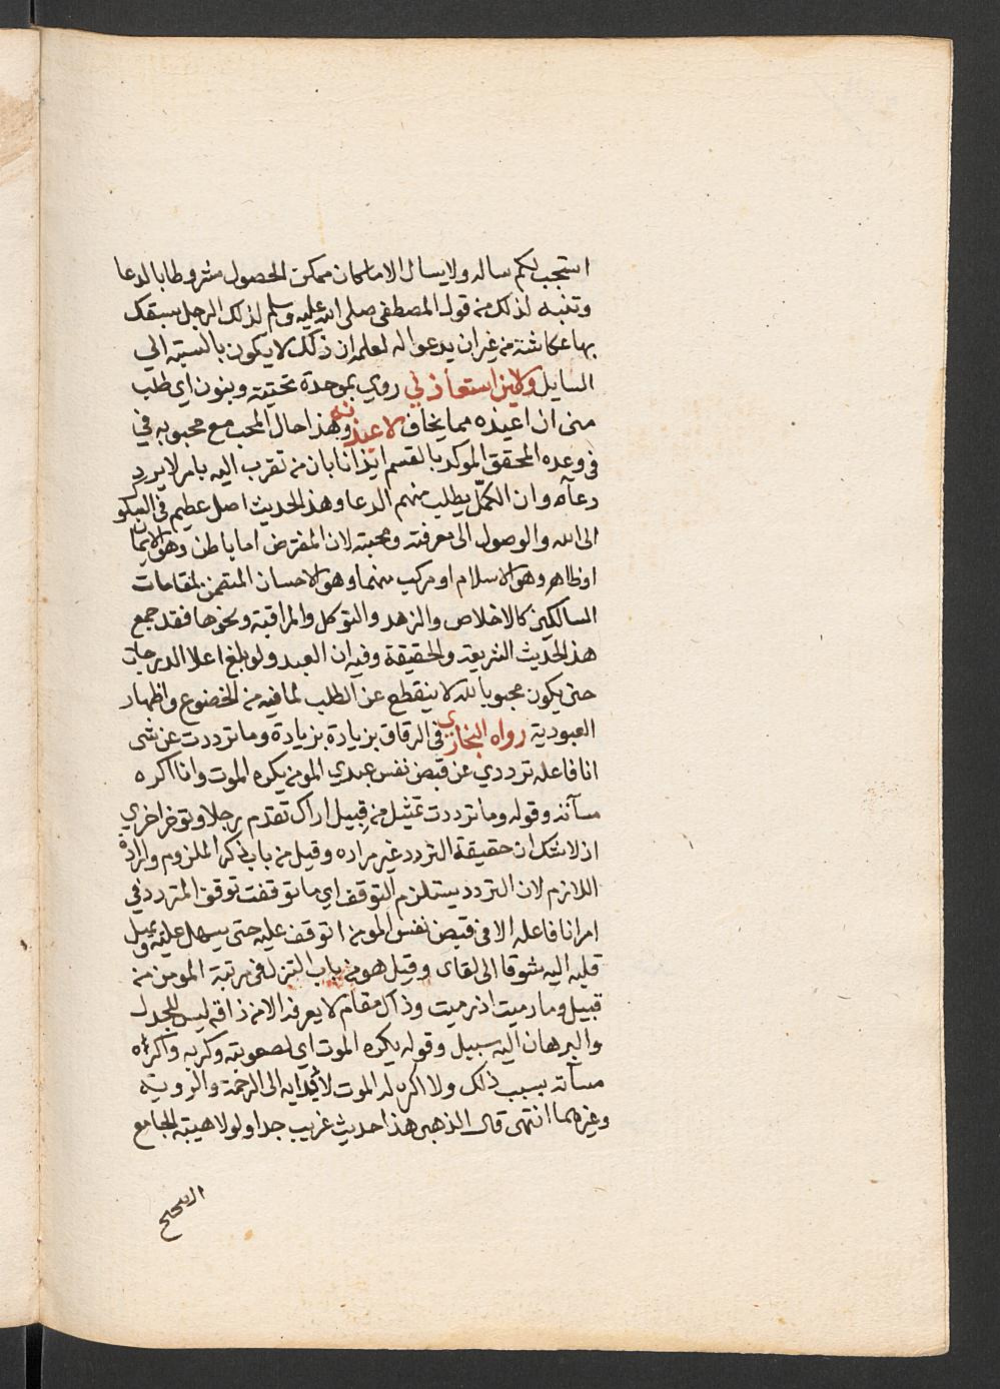 استجب لكم ساله ولا يسال الا ما كان ممكن الحصول مشروطا بالدعا
وتنبه لذلك من قول المصطفى صلى الله عليه وسلم لذلك الرجل سبقك
بها عكاشة من غير ان يدعو اله لعلمه ان ذلك لا يكون بالنسبة الي
السايل ولاين استعاذ ني روي بموحدة تحتية وبنون اي طلب
منى ان اعيذه مما يخاف لاعيذنه وهذا حال المحب مع محبوبه في
فى وعده المحقق الموكد بالقسم ايذانا بان من تقرب اليه بامر لا يرد
دعاه وان الكمّل يطلب منهم الدعا وهذ الحديث اصل عظيم فى السلو
الى الله والوصول الى معرفته ومحبته لان المفترض اما باطن وهو الايمان
او ظاهر وهو الاسلام او مركب منهما وهو الاحسان المتضمن لمقامات
السالكين كالاخلاص والزهد والتوكل والمراقبة ونحوها فقد جمع
هذ الحديث الشريعة والحقيقة وفيه ان العبد ولو بلغ اعلا الدرجات
حتى يكون محبوبا لله لا ينقطع عن الطلب لما فيه من الخضوع واظهار
العبودية رواه البخاري فى الرقاق بزيادة بزيادة وما ترددت عن شى
انا فاعله ترددي عن قبض نفس عبدي المومن يكره الموت وانا اكره
مسآته وقوله وما ترددت تمثيل من قبيل اراك تقدم رجلا وتوخر اخري
اذ لا شك ان حقيقة التردد غير مراده وقيل من باب ذكر الملزوم وارادة
اللازم لان التردد يستلزم التوقف اي ما توقفت توقف المتردد في
امر انا فاعله الا فى قبض نفس المومن اتوقف عليه حتى يسهل عليه ويميل
قلبه اليه شوقا الى لقاى وقيل هو من باب التنزل فى مرتبة المومن من
قبيل وما رميت اذ رميت وذاك مقام لا يعرفه الا من ذاقه ليس للجدل
والبرهان اليه سبيل وقوله يكره الموت اي لصعوبته وكربه واكره
مسآته بسبب ذلك ولا اكره له الموت لادايه الى الرحمة والروية
وغيرهما انتهى قال الذهبى هذا حديث غريب جدا ولولا هيبة الجامع
الصحيح